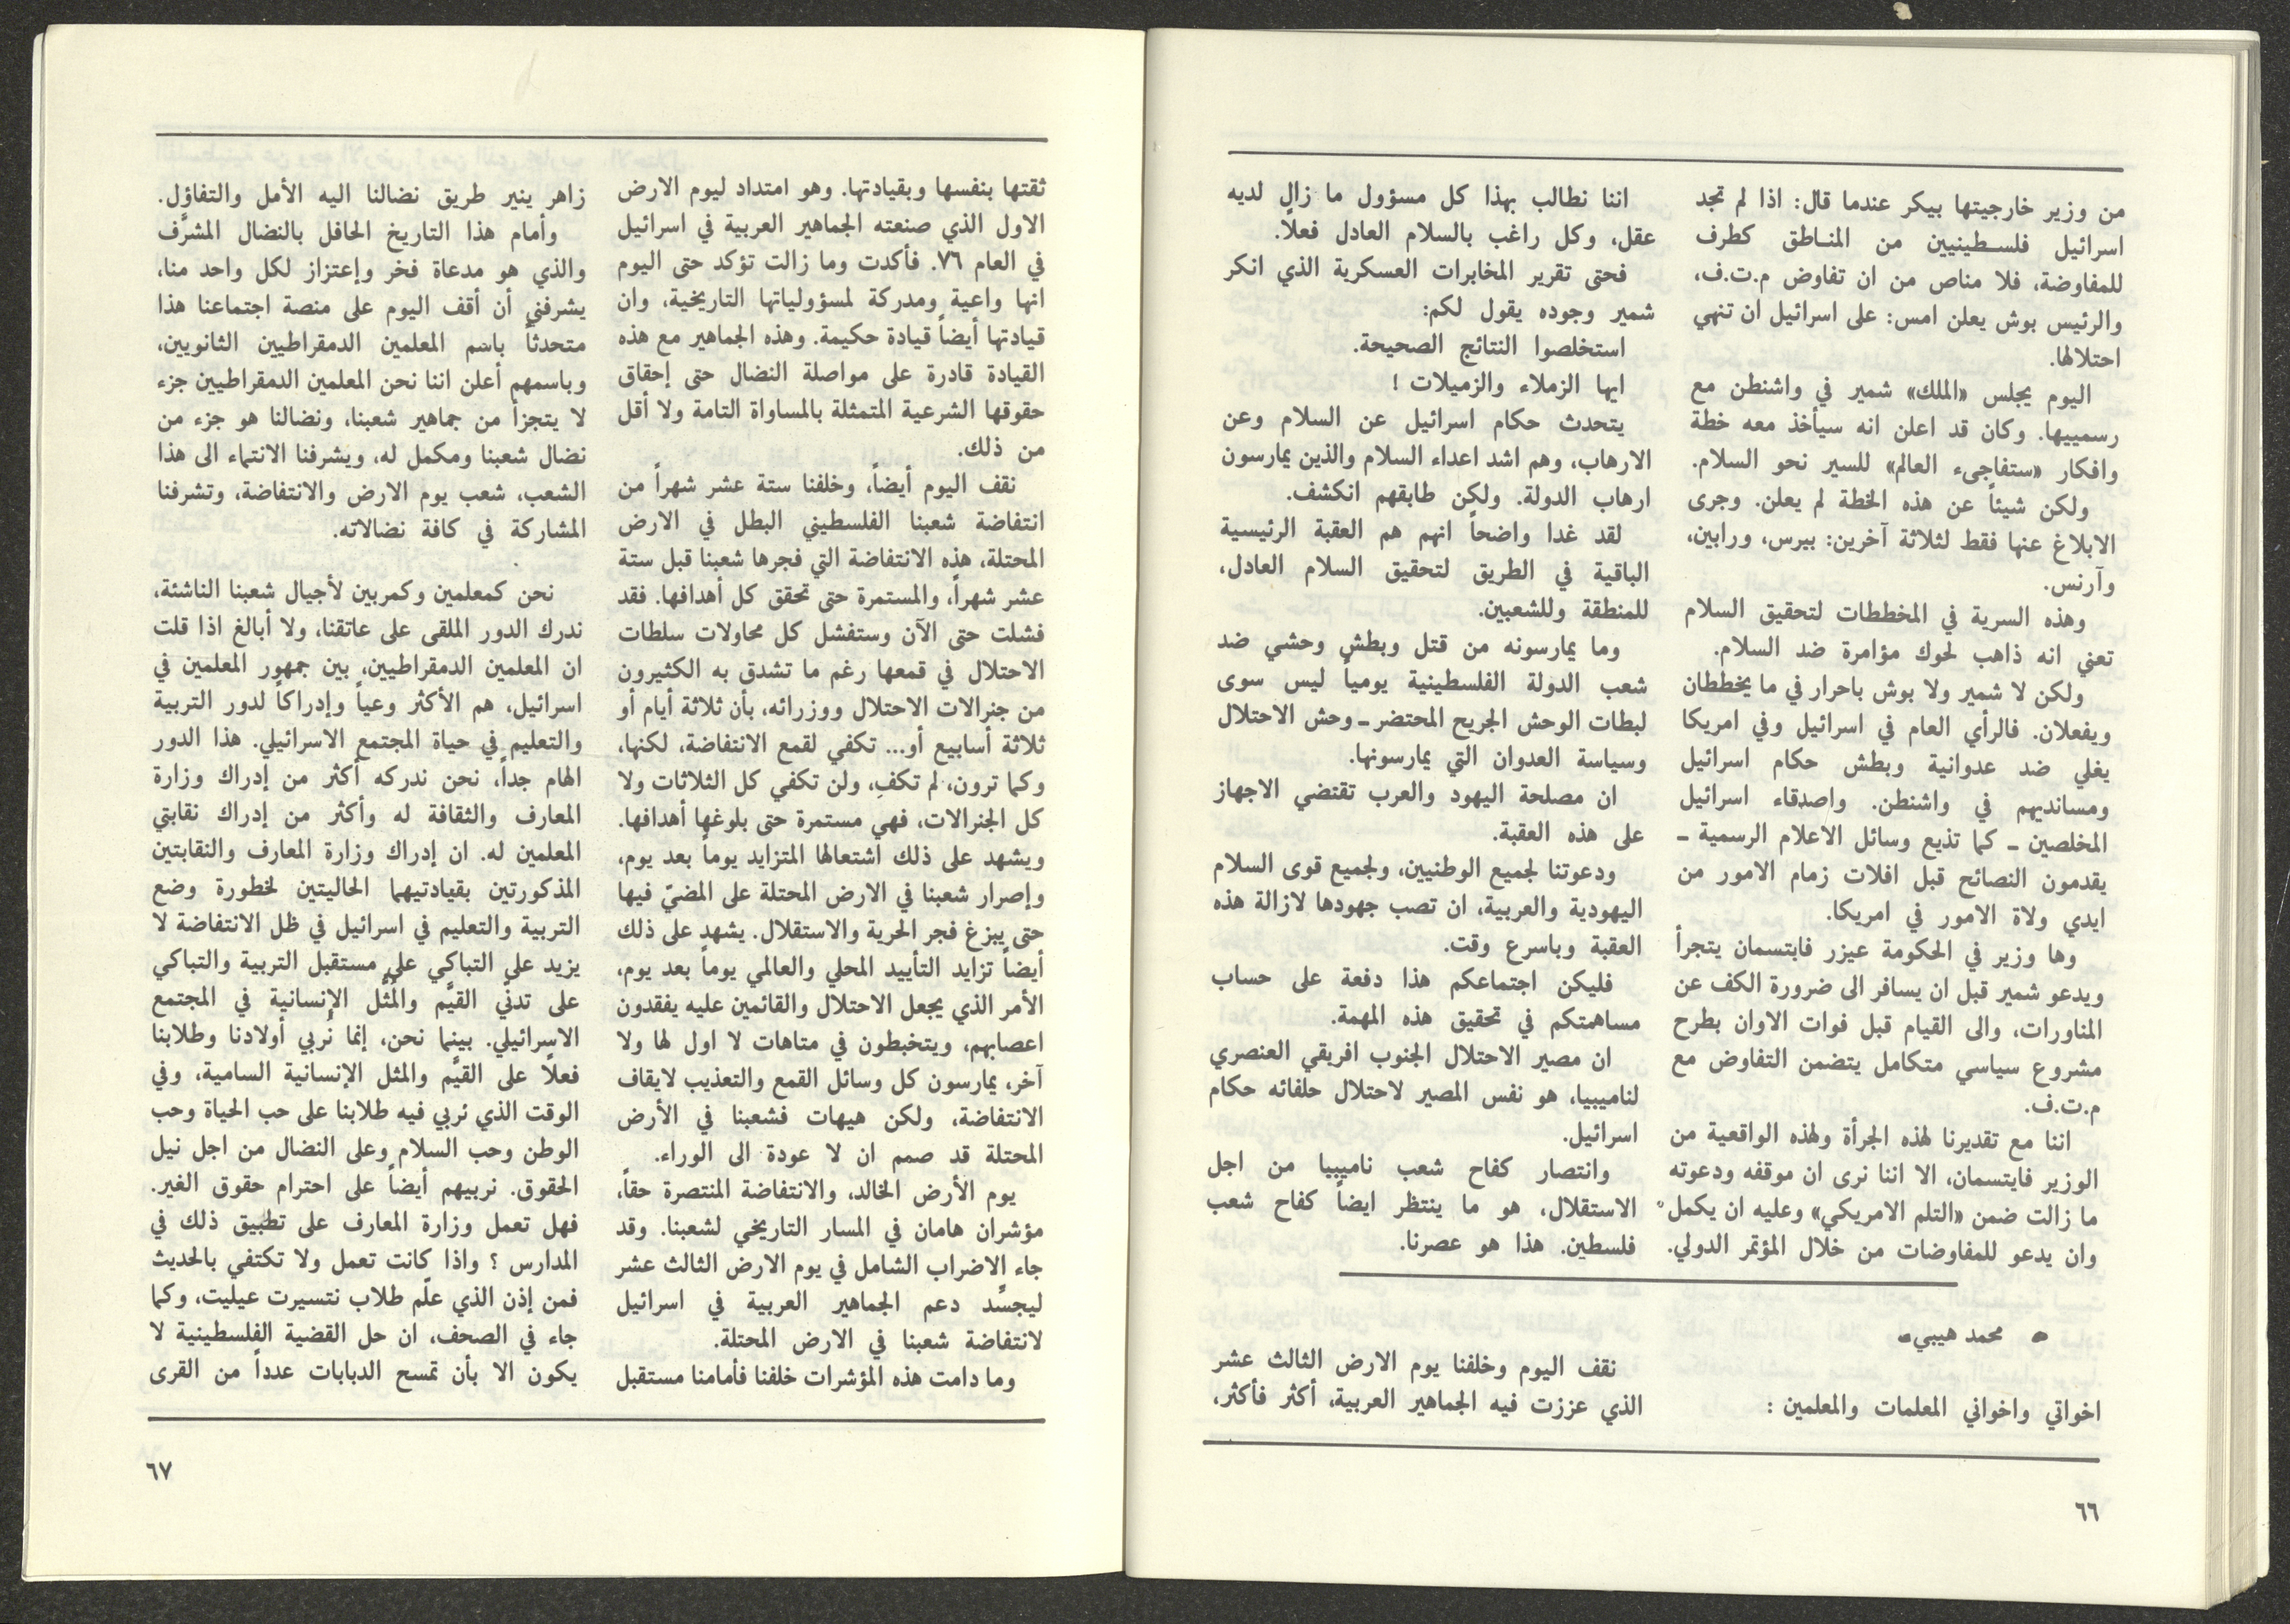 من وزير خارجيتها بيكر عندما قال: اذا لم تجد
اسرائيل فلسطينيين من المناطق كطرف
للمفاوضة، فلا مناص من ان تفاوض م.ت.ف،
والرئيس بوش يعلن امس: على اسرائيل ان تنهي
احتلالها.
اليوم يجلس «الملك» شمير في واشنطن مع
رسمييها. وكان قد اعلن انه سيأخذ معه خطة
وافكار «ستفاجىء العالم» للسير نحو السلام.
ولكن شيئاً عن هذه الخطة لم يعلن. وجرى
الابلاغ عنها فقط لثلاثة آخرين: بيرس، ورابين،
وآرنس.
وهذه السرية في المخططات لتحقيق السلام
تعني انه ذاهب لحوك مؤامرة ضد السلام.
ولكن لا شمير ولا بوش باحرار في ما يخططان
ويفعلان. فالرأي العام في اسرائيل وفي امريكا
يغلي ضد عدوانية وبطش حكام اسرائيل
ومسانديهم في واشنطن. واصدقاء اسرائيل
المخلصين ـ كما تذيع وسائل الاعلام الرسمية ـ
يقدمون النصائح قبل افلات زمام الامور من
ايدي ولاة الامور في امريكا.
وها وزير في الحكومة عيزر فايتسمان يتجرأ
ويدعو شمير قبل ان يسافر الى ضرورة الكف عن
المناورات، والى القيام قبل فوات الاوان بطرح
مشروع سياسي متكامل يتضمن التفاوض مع
م.ت.ف.
اننا مع تقديرنا لهذه الجرأة ولهذه الواقعية من
الوزير فايتسمان، الا اننا نرى ان موقفه ودعوته
ما زالت ضمن «التلم الامريكي» وعليه ان يكمل
وان يدعو للمفاوضات من خلال المؤتمر الدولي.
اننا نطالب بهذا كل مسؤول ما زال لديه
عقل، وكل راغب بالسلام العادل فعلاً.
فحتى تقرير المخابرات العسكرية الذي انكر
شمير وجوده يقول لكم:
استخلصوا النتائج الصحيحة.
ايها الزملاء والزميلات !
يتحدث حكام اسرائيل عن السلام وعن
الارهاب، وهم اشد اعداء السلام والذين يمارسون
ارهاب الدولة. ولكن طابقهم انكشف.
لقد غدا واضحاً انهم هم العقبة الرئيسية
الباقية في الطريق لتحقيق السلام العادل،
للمنطقة وللشعبين.
وما يمارسونه من قتل وبطش وحشي ضد
شعب الدولة الفلسطينية يومياً ليس سوى
لبطات الوحش الجريح المحتضر ـ وحش الاحتلال
وسياسة العدوان التي يمارسونها.
ان مصلحة اليهود والعرب تقتضي الاجهاز
على هذه العقبة.
ودعوتنا لجميع الوطنيين، ولجميع قوى السلام
اليهودية والعربية، ان تصب جهودها لازالة هذه
العقبة وباسرع وقت.
فليكن اجتماعكم هذا دفعة على حساب
مساهمتكم في تحقيق هذه المهمة.
ان مصير الاحتلال الجنوب افريقي العنصري
لناميبيا، هو نفس المصير لاحتلال حلفائه حكام
اسرائيل.
وانتصار كفاح شعب ناميبيا من اجل
الاستقلال، هو ما ينتظر ايضاً كفاح شعب
فلسطين. هذا هو عصرنا.
• محمد هيبي ـ
اخواتي واخواني المعلمات والمعلمين :
نقف اليوم وخلفنا يوم الارض الثالث عشر
الذي عززت فيه الجماهير العربية، أكثر فأكثر،
٦٦
ثقتها بنفسها وبقيادتها. وهو امتداد ليوم الارض
الاول الذي صنعته الجماهير العربية في اسرائيل
في العام ٧٦. فأكدت وما زالت تؤكد حتى اليوم
انها واعية ومدركة لمسؤولياتها التاريخية، وان
قيادتها أيضاً قيادة حكيمة. وهذه الجماهير مع هذه
القيادة قادرة على مواصلة النضال حتى إحقاق
حقوقها الشرعية المتمثلة بالمساواة التامة ولا أقل
من ذلك.
نقف اليوم أيضاً، وخلفنا ستة عشر شهراً من
انتفاضة شعبنا الفلسطيني البطل في الارض
المحتلة، هذه الانتفاضة التي فجرها شعبنا قبل ستة
عشر شهراً، والمستمرة حتى تحقق كل أهدافها. فقد
فشلت حتى الآن وستفشل كل محاولات سلطات
الاحتلال في قمعها رغم ما تشدق به الكثيرون
من جنرالات الاحتلال ووزرائه، بأن ثلاثة أيام أو
ثلاثة أسابيع أو... تكفي لقمع الانتفاضة، لكنها،
وكما ترون، لم تكفِ، ولن تكفي كل الثلاثات ولا
كل الجنرالات، فهي مستمرة حتى بلوغها أهدافها.
ويشهد على ذلك اشتعالها المتزايد يوماً بعد يوم،
وإصرار شعبنا في الارض المحتلة على المضيّ فيها
حتى يبزغ فجر الحرية والاستقلال. يشهد على ذلك
أيضاً تزايد التأييد المحلي والعالمي يوماً بعد يوم،
الأمر الذي يجعل الاحتلال والقائمين عليه يفقدون
اعصابهم، ويتخبطون في متاهات لا اول لها ولا
آخر، يمارسون كل وسائل القمع والتعذيب لايقاف
الانتفاضة، ولكن هيهات فشعبنا في الأرض
المحتلة قد صمم ان لا عودة الى الوراء.
يوم الأرض الخالد، والانتفاضة المنتصرة حقاً،
مؤشران هامان في المسار التاريخي لشعبنا. وقد
جاء الاضراب الشامل في يوم الارض الثالث عشر
ليجسِّد دعم الجماهير العربية في اسرائيل
لانتفاضة شعبنا في الارض المحتلة.
وما دامت هذه المؤشرات خلفنا فأمامنا مستقبل
زاهر ينير طريق نضالنا اليه الأمل والتفاؤل.
وأمام هذا التاريخ الحافل بالنضال المشرِّف
والذي هو مدعاة فخر وإعتزاز لكل واحد منا،
يشرفني أن أقف اليوم على منصة اجتماعنا هذا
متحدثاً باسم المعلمين الدمقراطيين الثانويين،
وباسمهم أعلن اننا نحن المعلمين الدمقراطيين جزء
لا يتجزأ من جماهير شعبنا، ونضالنا هو جزء من
نضال شعبنا ومكمل له، ويشرفنا الانتماء الى هذا
الشعب، شعب يوم الارض والانتفاضة، وتشرفنا
المشاركة في كافة نضالاته.
نحن كمعلمين وكمربين لأجيال شعبنا الناشئة،
ندرك الدور الملقى على عاتقنا، ولا أبالغ اذا قلت
ان المعلمين الدمقراطيين، بين جمهور المعلمين في
اسرائيل، هم الأكثر وعياً وإدراكاً لدور التربية
والتعليم في حياة المجتمع الاسرائيلي. هذا الدور
الهام جداً، نحن ندركه أكثر من إدراك وزارة
المعارف والثقافة له وأكثر من إدراك نقابتي
المعلمين له. ان إدراك وزارة المعارف والنقابتين
المذكورتين بقيادتيهما الحاليتين لخطورة وضع
التربية والتعليم في اسرائيل في ظل الانتفاضة لا
يزيد على التباكي على مستقبل التربية والتباكي
على تدنّي القيَّم والمُثُل الإنسانية في المجتمع
الاسرائيلي. بينما نحن، إنما نُربي أولادنا وطلابنا
فعلاً على القيَّم والمثل الإنسانية السامية، وفي
الوقت الذي نربي فيه طلابنا على حب الحياة وحب
الوطن وحب السلام وعلى النضال من اجل نيل
الحقوق. نربيهم أيضاً على احترام حقوق الغير.
فهل تعمل وزارة المعارف على تطبيق ذلك في
المدارس ؟ واذا كانت تعمل ولا تكتفي بالحديث
فمن إذن الذي علّم طلاب نتسيرت عيليت، وكما
جاء في الصحف، ان حل القضية الفلسطينية لا
يكون الا بأن تمسح الدبابات عدداً من القرى
٦٧